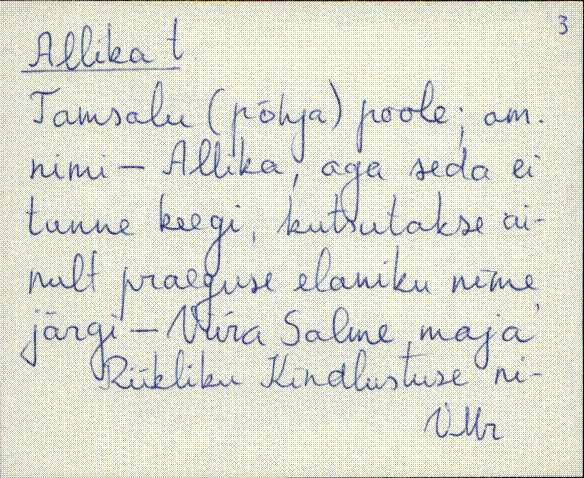 3
Allika t
Tamsalu (põhja) poole; am.
nimi – Allika, aga seda ei
tunne keegi, kutsutakse ai-
nult praeguse elaniku nime
järgi – Viira Salme maja
Riikliku Kindlustuse ni-
VMr